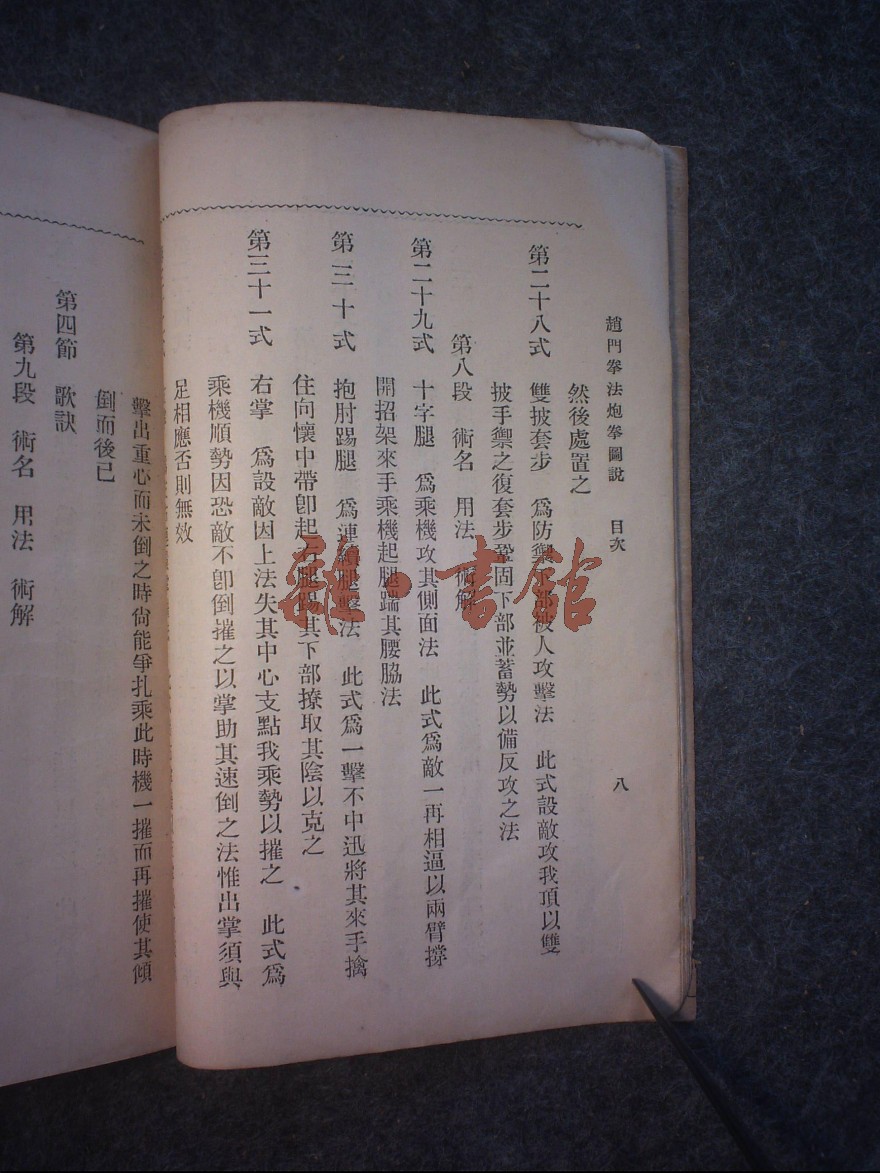 趙門拳法炮拳圖説　目次　八
然後處置之
第二十八式　雙披套步　爲防禦下部被人攻擊法　此式設敵攻我頂以雙
披手禦之復套步鞏固下部並蓄勢以備反攻之法
第八段　術名　用法　術解
第二十九式　十字腿　爲乘機攻其側面法　此式爲敵一再相逼以兩臂撐
開招架來手乘機起腿踹其腰脇法
第三十式　抱肘踢腿　爲連續腿擊法　此式爲一擊不中迅將其來手擒
住向懷中帶卽起右腿踢其下部撩取其陰以克之
第三十一式　右掌　爲設敵因上法失其中心支點我乘勢以摧之　此式爲
乘機順勢因恐敵不卽倒摧之以掌助其速倒之法惟出掌須與
足相應否則無效
擊出重心而未倒之時尙能爭扎乘此時機一摧而再摧使其傾
倒而後已
第四節　歌訣
第九段　術名　用法　術解
雜·書館